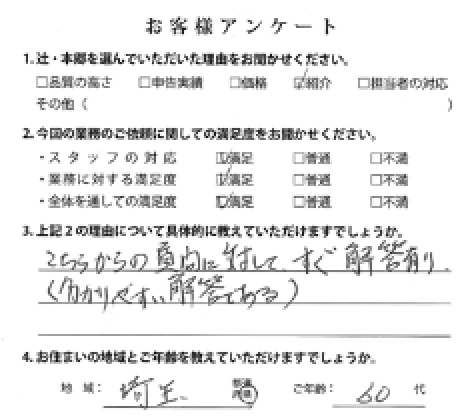 お客様アンケート
1. 辻・本郷を選んでいただいた理由をお聞かせください。
□品質の高さ □申告実績 □価格 ☑紹介 □担当者の対応
その他（ ）
2. 今回の業務のご依頼に関しての満足度をお聞かせください。
・スタッフの対応 ☑満足 □普通 □不満
・業務に対する満足度 ☑満足 □普通 □不満
・全体を通しての満足度 ☑満足 □普通 □不満
3. 上記2の理由について具体的に教えていただけますでしょうか。
こちらからの質問に対して、すぐ解答有り。
(分かりやすい解答である)
4. お住まいの地域とご年齢を教えていただけますでしょうか。
地域: 埼玉 都道府県 ご年齢: 60 代